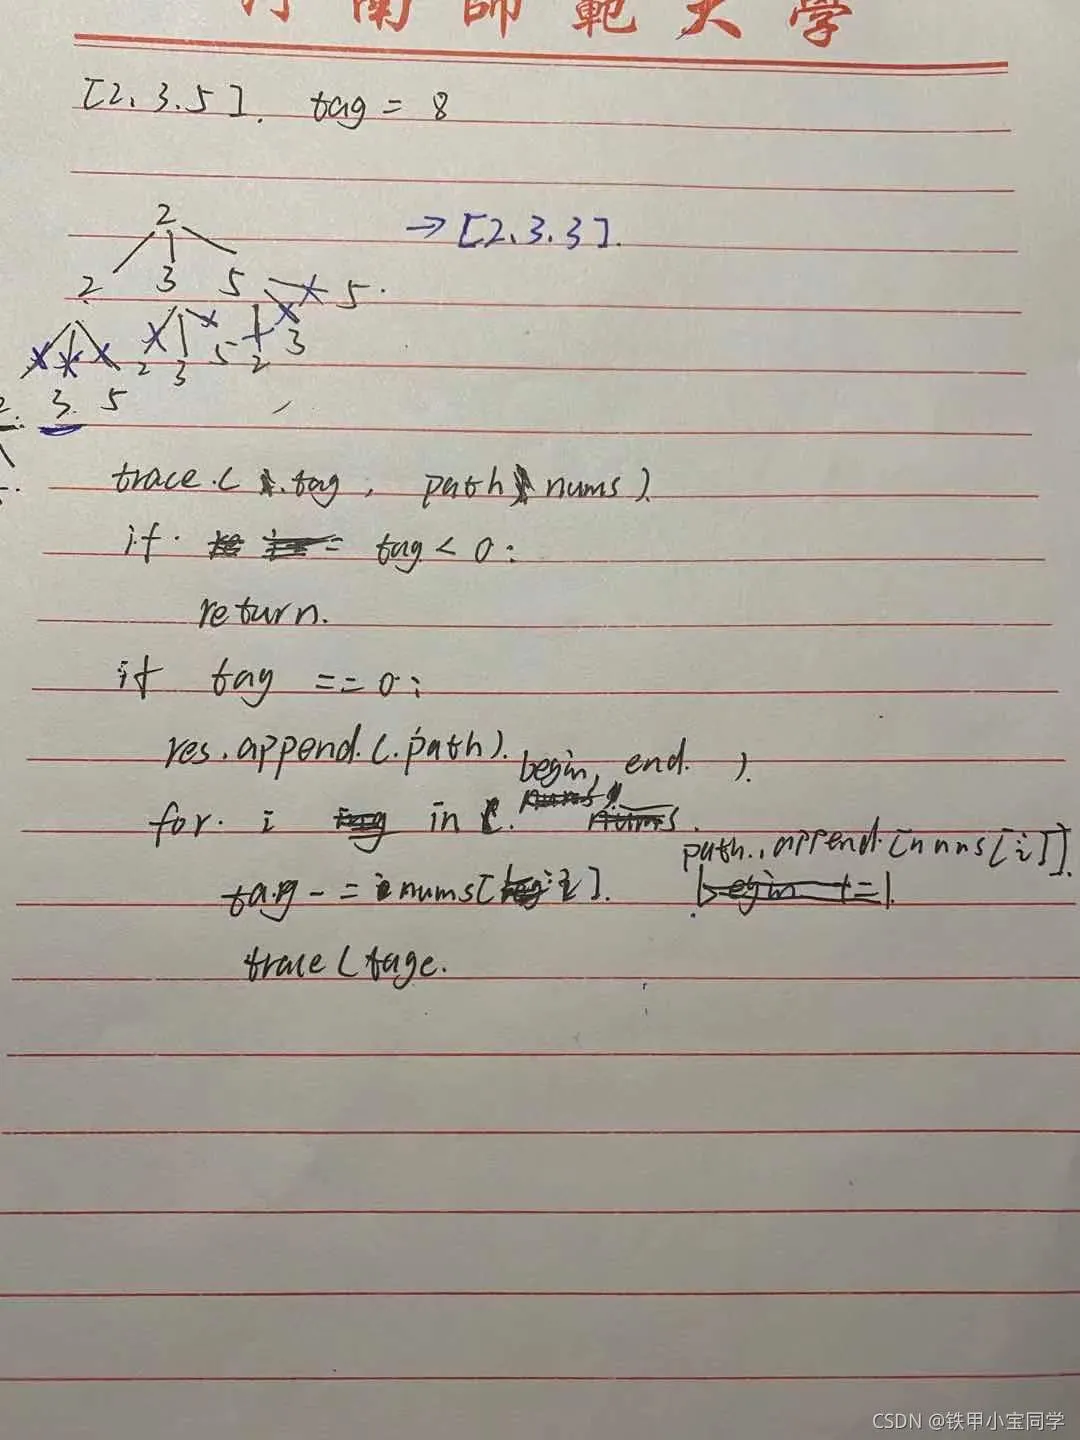 南師範大學
[2.3.5]. tag = 8
2
→ [2.3.3].
2 3 5 5.
2 3 5 2 3
3. 5
trace.( tag, path nums).
if. tag < 0:
return.
if tag == 0:
res.append.(.path).
begin, end. ).
for. i in
path..append.[nums[i]].
tag -= nums[i].
trace (tage.
CSDN @铁甲小宝同学